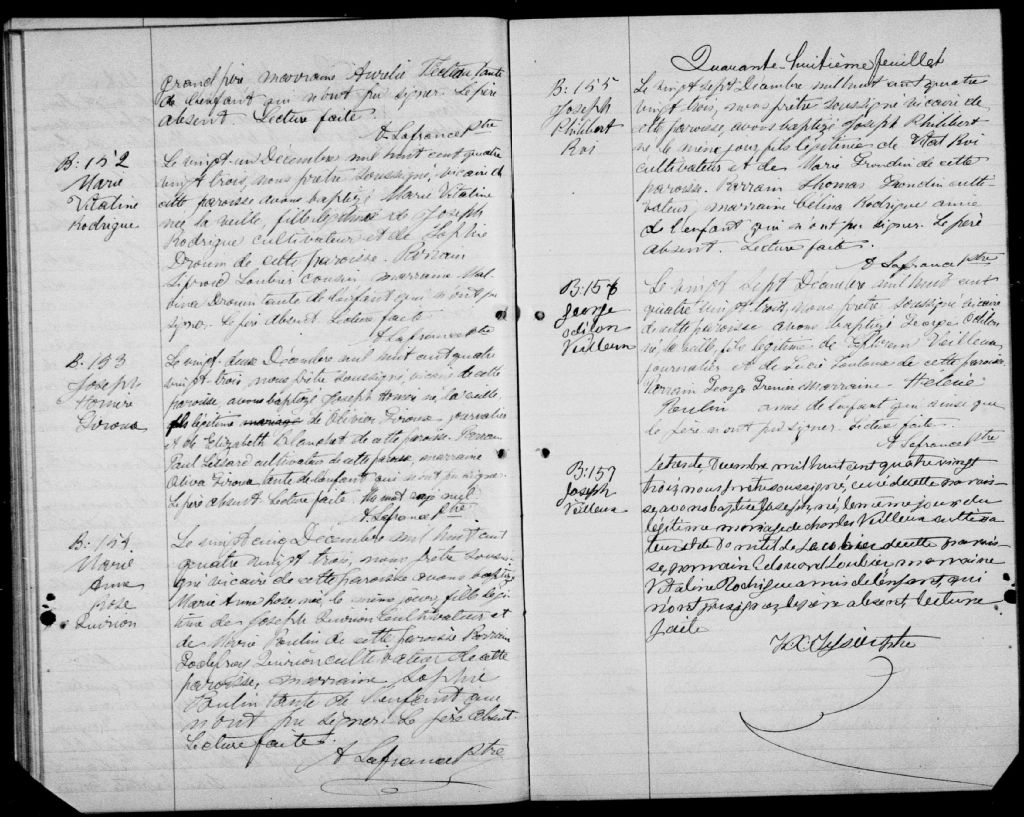 grand père marraine Aurelie Veilleux tante
de l'enfant qui n'ont pu signer. Le père
absent. Lecture faite.
A Lafrance Ptre
B. 152
Marie
Vitaline
Rodrigue
Le vingt-un Décembre mil huit cent quatre
vingt trois, nous prêtre soussigné, vicaire de
cette paroisse avons baptizé Marie Vitaline
née la veille, fille légitime de Joseph
Rodrigue cultivateur et de Sophie
Drouin de cette paroisse. Parrain
Loubier cousin, marraine Mal-
vina Drouin tante de l'enfant qui n'ont pu
signer. Le père absent. Lecture faite
A Lafrance Ptre
B. 153
Joseph
Homère
Giroux
Le vingt-deux Décembre mil huit cent quatre
vingt-trois, nous prêtre soussigné, vicaire de cette
paroisse, avons baptizé Joseph né la veille,
fils légitime mariage de Olivier Giroux journalier
et de Elizabeth Blanchet de cette paroisse. Parrain
Paul Lessard cultivateur de cette paroisse, marraine
Oliva Giroux tante de l'enfant qui n'ont pu signer.
Le père absent. Lecture faite. Un mot rayé nul.
A. Lafrance Ptre
B. 154
Marie
Anne
Rose
Quirion
Le vingt cinq Décembre mil huit cent
quatre vingt trois, nous prêtre soussi-
gné vicaire de cette paroisse avons baptizé
Marie Anne Rose, née le même jour, fille légi-
time de Joseph Quirion cultivateur et
de Marie Poulin de cette paroisse Parrain
Godefroy Quirion cultivateur de cette
paroisse, marraine Sophie
Poulin tante de l'enfant qui
n'ont pu signer. Le père absent.
Lecture faite.
A Lafrance Ptre
Quarante-huitième feuillet
B. 155
Joseph
Philibert
Roi
Le vingt sept Décembre mil huit cent quatre
vingt trois, nous prêtre soussigné vicaire de
cette paroisse, avons baptizé Joseph Philibert
né le même jour fils légitime de Vital Roi
cultivateur et de Marie Grondin de cette
paroisse. Parrain Thomas Grondin culti-
vateur, marraine Célina Rodrigue amie
de l'enfant qui n'ont pu signer. Le père
absent. Lecture faite.
A Lafrance Ptre
B. 156
George
Odilon
Veilleux
Le vingt sept Décembre mil huit cent
quatre vingt trois, nous prêtre soussigné vicaire
de cette paroisse avons baptizé George Odilon
né la veille, fils légitime de Veilleux
journalier et de de cette paroisse
Parrain George marraine Helene
Poulin amis de l'enfant qui ainsi que
le père n'ont pu signer. Lecture faite.
A Lafrance Ptre
B. 157
Joseph
Veilleux
Décembre mil huit cent quatre vingt
trois, nous prêtre soussigné, curé de cette parois-
se, avons baptisé Joseph, né le même jour du
légitime mariage de Charles Veilleux cultiva-
teur et de de cette parois-
se, parrain Edouard Loubier marraine
Vitaline Rodrigue amis de l'enfant, qui
n'ont pu signer, le père absent, lecture
faite